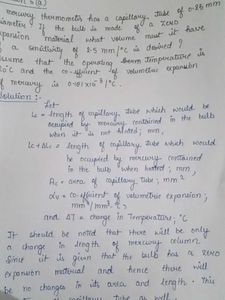 mercury thermometer has a capillary tube of 0.25 mm
diameter. If the bulb is made of a zero
expansion material what volume must it have
if a sensitivity of 2.5 mm/°C is desired ?
Assume that the operating temperature is
20°C and the co-efficient of volumetric expansion
of mercury is 0.181×10⁻³ /°C.
Solution :-
Let
Lc = length of capillary tube which would be
occupied by mercury contained in the bulb
when it is not heated; mm,
Lc + ΔLc = length of capillary tube which would
be occupied by mercury contained
in the bulb when heated ; mm,
Ac = area of capillary tube; mm²
αv = co-efficient of volumetric expansion ;
mm³/mm³.°C ;
and ΔT = change in Temperature; °C
It should be noted that there will be only
a change in length of mercury column.
Since it is given that the bulb has a zero
expansion material and hence there will
be no changes in its area and length. This
capillary tube as well